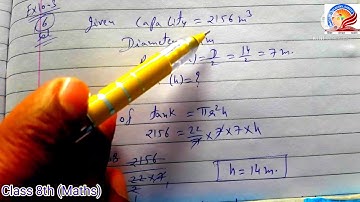 Ex 10.3
6 Given Capacity = 2156 m³
Sol
Diameter m
= D/2 = 14/2 = 7 m.
(h) = ?
of tank = πr²h
2156 = 22/7 × 7 × 7 × h
2156
22 × 7
h = 14 m.
Class 8th (Maths)